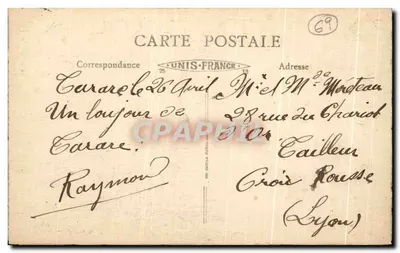 69
CARTE POSTALE
Correspondance
UNIS-FRANCE
Adresse
Tarare le 26 Avril
Un bonjour de
Tarare.
Raymond
Mr et Mde
28 rue du Chariot
d'Or
Tailleur
Croix Rousse
(Lyon)
Cparama